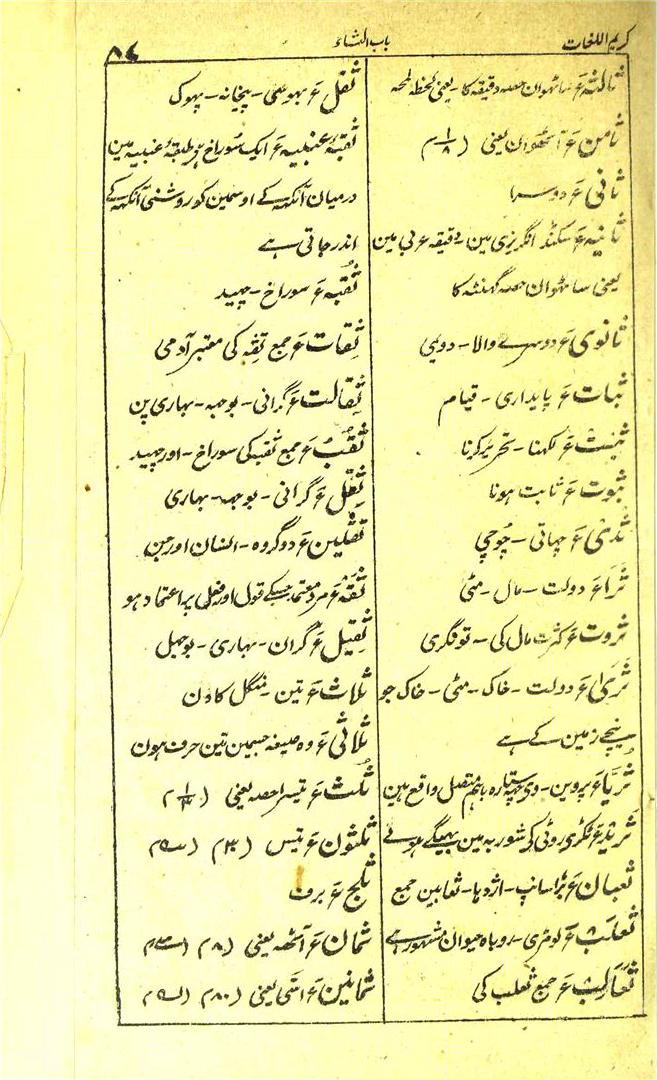 کریم اللغات
باب الثاء
۸۴
ثالثہ ع ساٹھوان حصہ دقیقہ کا - یعنی لحظہ لمحہ
ثامن ع آٹھوان یعنی (۱/۸ م)
ثانی ع دوسرا
ثانیہ ع سکنڈ انگریزی مین دقیقہ عربی مین
یعنی ساٹھوان حصہ گھنٹہ کا
ثانوی ع دوسرے والا - دویمی
ثبات ع پایداری - قیام
ثبت ع لکھنا - تحریر کرنا
ثبوت ع ثابت ہونا
ثدی ع چھاتی - چُوچی
ثراء ع دولت - مال - مٹی
ثروت ع کثرت مال کی - تونگری
ثریٰ ع دولت - خاک - مٹی - خاک جو
نیچے زمین کے ہے
ثریا ع پروین - وہ چھ ستارہ باہم متصل واقع ہین
ثرید ع ٹکڑی روٹی کی شوربہ مین بھیگے ہوئے
ثعبان ع بڑا سانپ - اژدہا - ثعابین جمع
ثعلب ع لومڑی - روباہ حیوان مشہور ہے
ثعالب ع جمع ثعلب کی
ثفل ع بھوسی - پیخانہ - پھوک
ثقبۂ عنبیہ ع ایک سوراخ ہر طبقۂ عنبیہ مین
درمیان آنکھ کے اوسمین کو روشنی آنکھ کے
اندر جاتی ہے
ثُقبہ ع سوراخ - چھید
ثِقات ع جمع ثقہ کی معتبر آدمی
ثِقالت ع گرانی - بوجھ - بھاری پن
ثُقب ع جمع ثقبہ کی سوراخ - اور چھید
ثِقل ع گرانی - بوجھ - بھاری
ثقلین ع دو گروہ - انسان اور جن
ثقہ ع مرد معتمد جسکے قول اور فعل پر اعتماد ہو
ثقیل ع گران - بھاری - بوجھل
ثلاث ع تین - منگل کا دن
ثلاثی ع وہ صیغہ جسمین تین حرف ہون
ثُلث ع تیسرا حصہ یعنی (۱/۳ م)
ثلثون ع تیس (۳۰ م)
ثلج ع برف
ثمان ع آٹھ یعنی (۸ م)
ثمانین ع اسّی یعنی (۸۰ م)